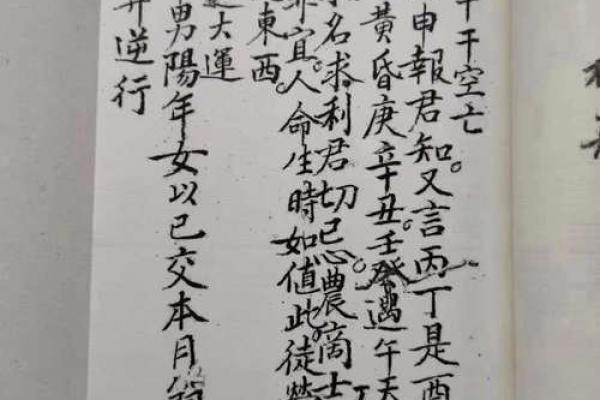 干空亡
申報君知。又言丙丁是酉
黃昏庚辛丑。壬癸遇午天
名求利君切忌。農商士
宜。人命生時如值此。徒勞
東西。
大運
男陽年女以已交本月
逆行